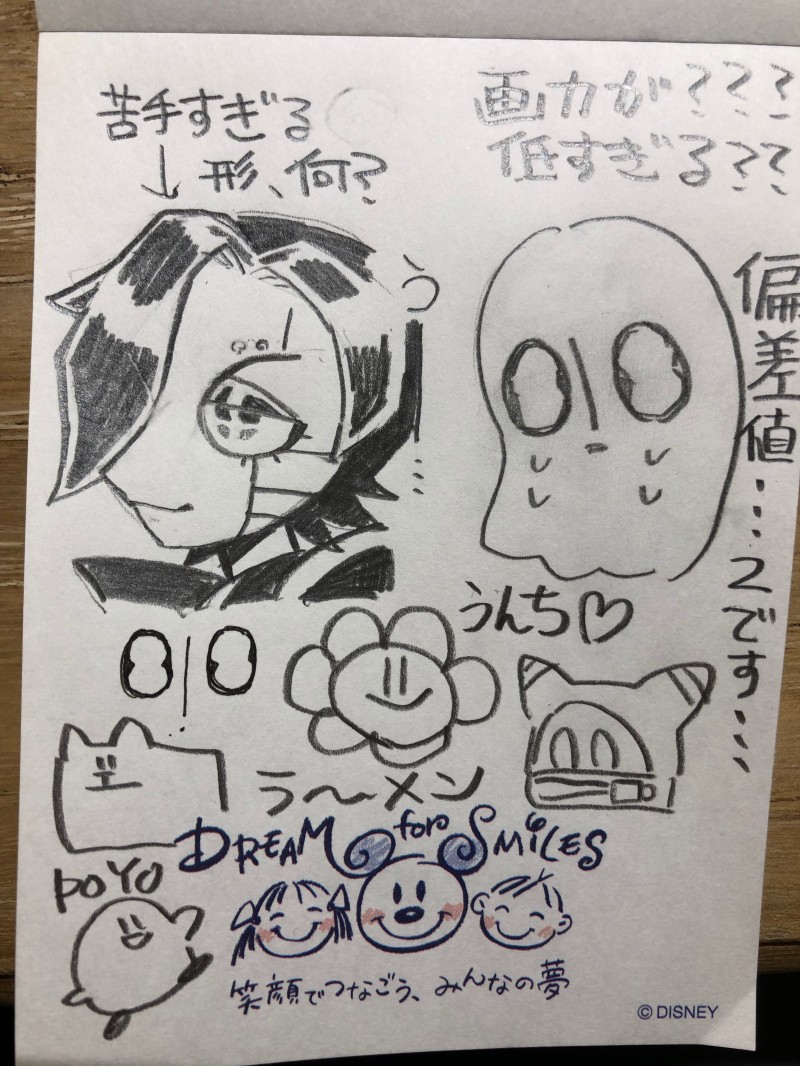 苦手すぎる
→形、何?
画力が???
低すぎる??
う
偏差値...2です...
うんち♡
ら〜メン
DREAM for SMILES
POYO
笑顔でつなごう、みんなの夢
© DISNEY